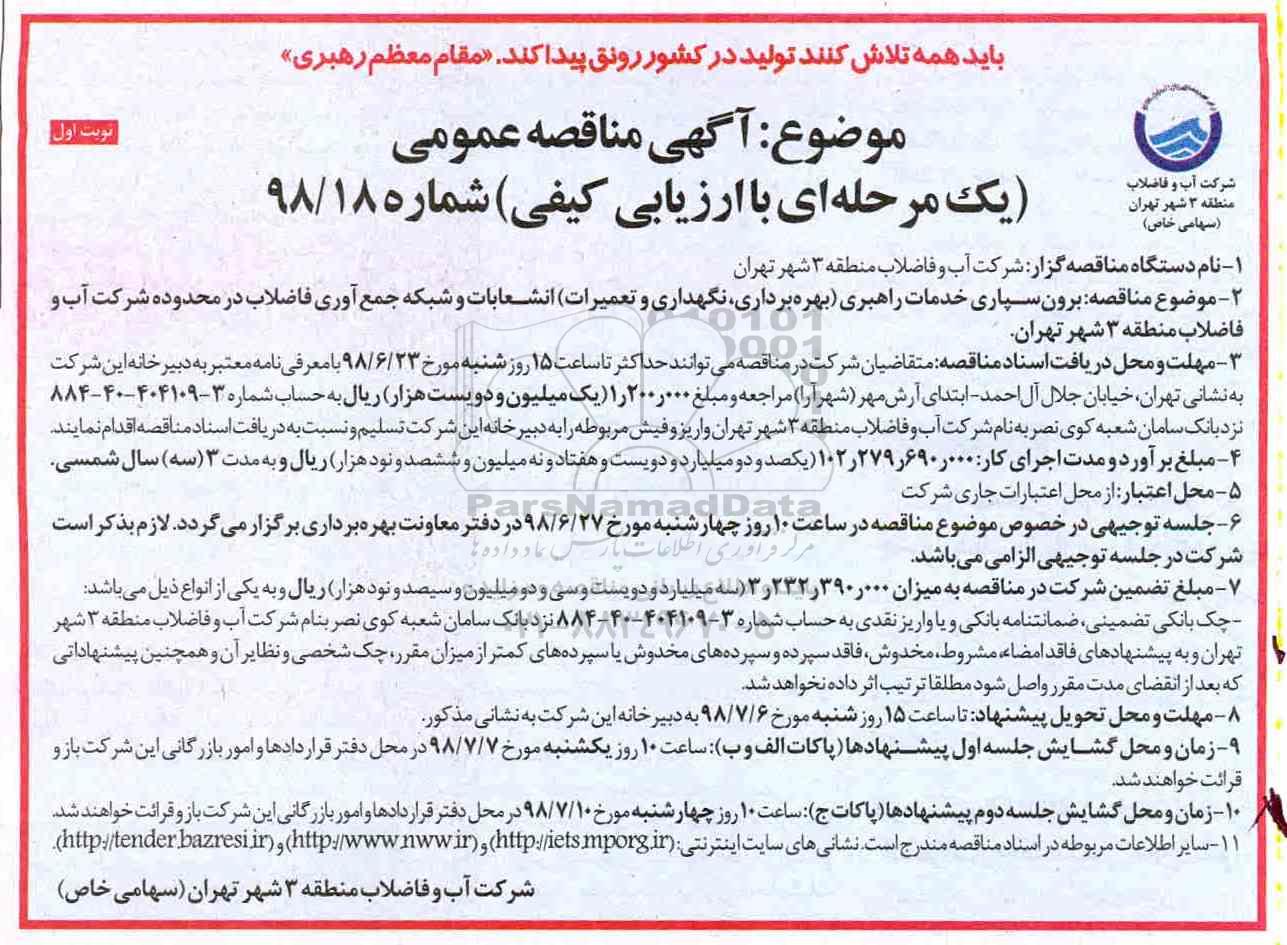 باید همه تلاش کنند تولید در کشور رونق پیدا کند. «مقام معظم رهبری»
نوبت اول
موضوع: آگهی مناقصه عمومی
(یک مرحله‌ای با ارزیابی کیفی) شماره ۹۸/۱۸
شرکت آب و فاضلاب
منطقه ۳ شهر تهران
(سهامی خاص)
۱-نام دستگاه مناقصه گزار: شرکت آب و فاضلاب منطقه ۳ شهر تهران
۲-موضوع مناقصه: برون سپاری خدمات راهبری (بهره‌برداری، نگهداری و تعمیرات) انشعابات و شبکه جمع آوری فاضلاب در محدوده شرکت آب و
فاضلاب منطقه ۳ شهر تهران.
۳-مهلت و محل دریافت اسناد مناقصه: متقاضیان شرکت در مناقصه می توانند حداکثر تا ساعت ۱۵ روز شنبه مورخ ۹۸/۶/۲۳ با معرفی نامه معتبر به دبیرخانه این شرکت
به نشانی تهران، خیابان جلال آل احمد- ابتدای آرش مهر (شهرآرا) مراجعه و مبلغ ۱٫۲۰۰٫۰۰۰ (یک میلیون و دویست هزار) ریال به حساب شماره ۳-۴۰۴۱۰۹-۴۰-۸۸۴
نزد بانک سامان شعبه کوی نصر به نام شرکت آب و فاضلاب منطقه ۳ شهر تهران واریز و فیش مربوطه را به دبیرخانه این شرکت تسلیم و نسبت به دریافت اسناد مناقصه اقدام نمایند.
۴-مبلغ برآورد و مدت اجرای کار: ۱۰۲٫۲۷۹٫۶۹۰٫۰۰۰ (یکصد و دو میلیارد و دویست و هفتاد و نه میلیون و ششصد و نود هزار) ریال و به مدت ۳ (سه) سال شمسی.
۵-محل اعتبار: از محل اعتبارات جاری شرکت
۶-جلسه توجیهی در خصوص موضوع مناقصه در ساعت ۱۰ روز چهارشنبه مورخ ۹۸/۶/۲۷ در دفتر معاونت بهره‌برداری برگزار می گردد. لازم بذکر است
شرکت در جلسه توجیهی الزامی می باشد.
۷-مبلغ تضمین شرکت در مناقصه به میزان ۳٫۲۳۲٫۳۹۰٫۰۰۰ (سه میلیارد و دویست و سی و دو میلیون و سیصد و نود هزار) ریال و به یکی از انواع ذیل می باشد:
-چک بانکی تضمینی، ضمانتنامه بانکی و یا واریز نقدی به حساب شماره ۳-۴۰۴۱۰۹-۴۰-۸۸۴ نزد بانک سامان شعبه کوی نصر بنام شرکت آب و فاضلاب منطقه ۳ شهر
تهران و به پیشنهادهای فاقد امضاء، مشروط، مخدوش، فاقد سپرده و سپرده‌های مخدوش یا سپرده‌های کمتر از میزان مقرر، چک شخصی و نظایر آن و همچنین پیشنهاداتی
که بعد از انقضای مدت مقرر واصل شود مطلقا ترتیب اثر داده نخواهد شد.
۸-مهلت و محل تحویل پیشنهاد: تا ساعت ۱۵ روز شنبه مورخ ۹۸/۷/۶ به دبیرخانه این شرکت به نشانی مذکور.
۹-زمان و محل گشایش جلسه اول پیشنهادها (پاکات الف و ب): ساعت ۱۰ روز یکشنبه مورخ ۹۸/۷/۷ در محل دفتر قراردادها و امور بازرگانی این شرکت باز و
قرائت خواهند شد.
۱۰-زمان و محل گشایش جلسه دوم پیشنهادها (پاکات ج): ساعت ۱۰ روز چهارشنبه مورخ ۹۸/۷/۱۰ در محل دفتر قراردادها و امور بازرگانی این شرکت باز و قرائت خواهند شد.
۱۱-سایر اطلاعات مربوطه در اسناد مناقصه مندرج است. نشانی های سایت اینترنتی: (http://iets.mporg.ir) و (http://www.nww.ir) و (http://tender.bazresi.ir).
شرکت آب و فاضلاب منطقه ۳ شهر تهران (سهامی خاص)
ParsNamadData
مرکز فرآوری اطلاعات پارس نماد داده‌ها